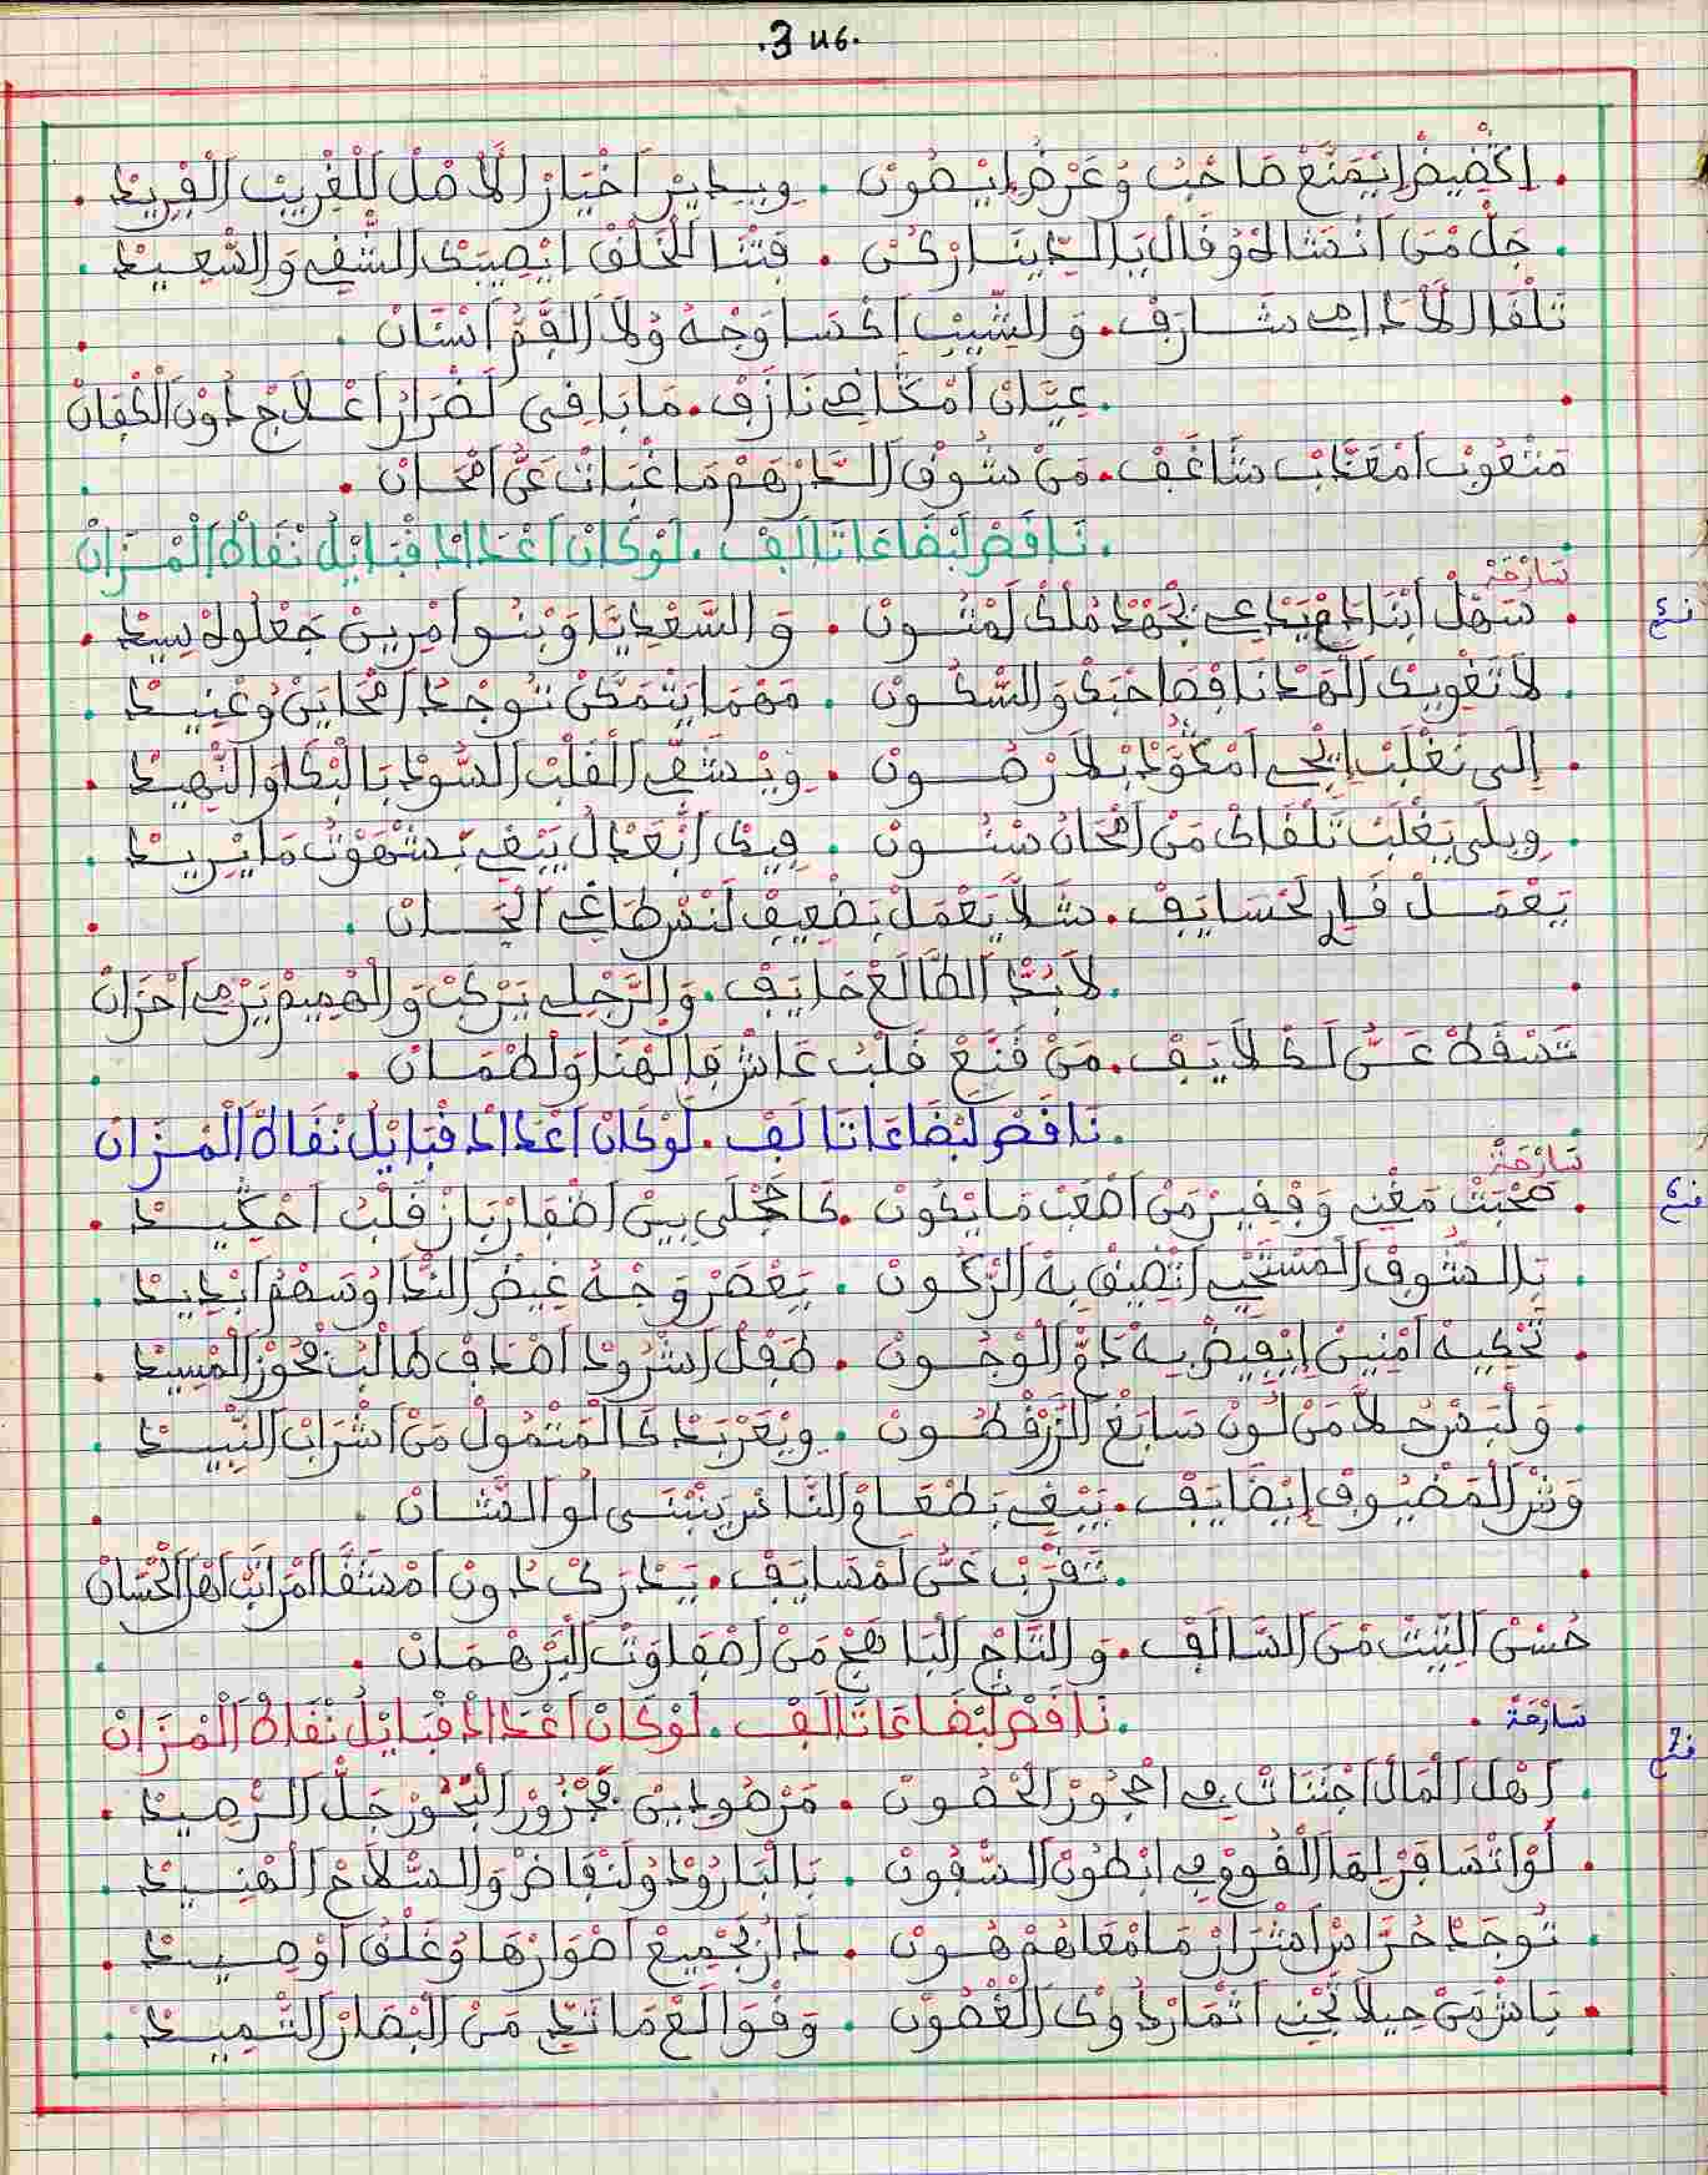 .3 us.
. اكضيض ايمنع صاحب وعرض ايصون . ويدير اخيار الاصل للغريب الفريد .
. جل من انشاك وقال يا الدينار كن . فتنا للخلق ايصيبك الشقي والسعيد .
تلقا الادامي شارف . والشيب اكسا وجه ولا الفم اسنان .
. عيان نازف . مابا في لضرار اعلاج دون الكفان
متعوب امعذب شاغف . من شوف الدرهم ما غبات عن امحان .
. ناقص لبضاعا تالف . لوكان اعداد قبايل نفاه الميزان
سارحة
. سهل ابنادم يدعي بجهد ملك لمتون . والسعديا وبنو امرين جعلوه سيد .
. لا تغويك الهدنا فصاحبك والسكون . مهما يتمكن توجد امحاين وعنيد .
. الى تغلب ايجي بلا رصون . ويشف القلب السود بالبكا والنهيد .
. ويلى يغلب تلقاك من امحان سنون . فيك ايعدل يبغي شهوت ما يريد .
يعمل فاي لحسايف . شلا يعمل بضعيف لنس طاغي الجان .
. لا بد الطالع حايف . والرجلي يركب والهميم يرمي احزان
تسقط عن لكلايف . من قنع قلب عاش فالهنا ولطمان .
. ناقص لبضاعا تالف . لوكان اعداد قبايل نفاه الميزان
سارحة
. صحبت مغني وفقير من اصعب ما يكون . كا حجلى بين اضفار باز قلب احكيد .
. بالشوف المستحي اتضيق به الركون . يعصر وجه غيض الندا وسهم ابديد .
. تحكيه امنين ايفيض به دم الوجون . طفل اشرود اصداف طالب عجوز المسيد .
. ولبس حلا من لون سابغ الزرقطون . ويعربد كالمتمول من اشراب النبيد .
وش المضيوف ايضايف . يبغي بطعام الناس ينبنى لو الشان .
. تقرب عن لمسايف . يدرك دون امشقا امراتب اهل الحسان
حسن البيت من السالف . والتاج الباهج من اصفاوت البرهمان .
. ناقص لبضاعا تالف . لوكان اعداد قبايل نفاه الميزان
سارحة .
. اهل المال اجنات في احجور الحصون . مرصودين فجزور البحور جل الرصيد .
. لو اتسافر لها القوم في ابطون السفون . بالبارود ولنفاض والسلاح الهنيد .
. توجد حراس اشرار ما معاهم هون . دار بجميع اصوارها وغلق اوصيد .
. باش من حيلا تجني اثمار دوك الغصون . وقوالع ما تد من البصار الثميد .